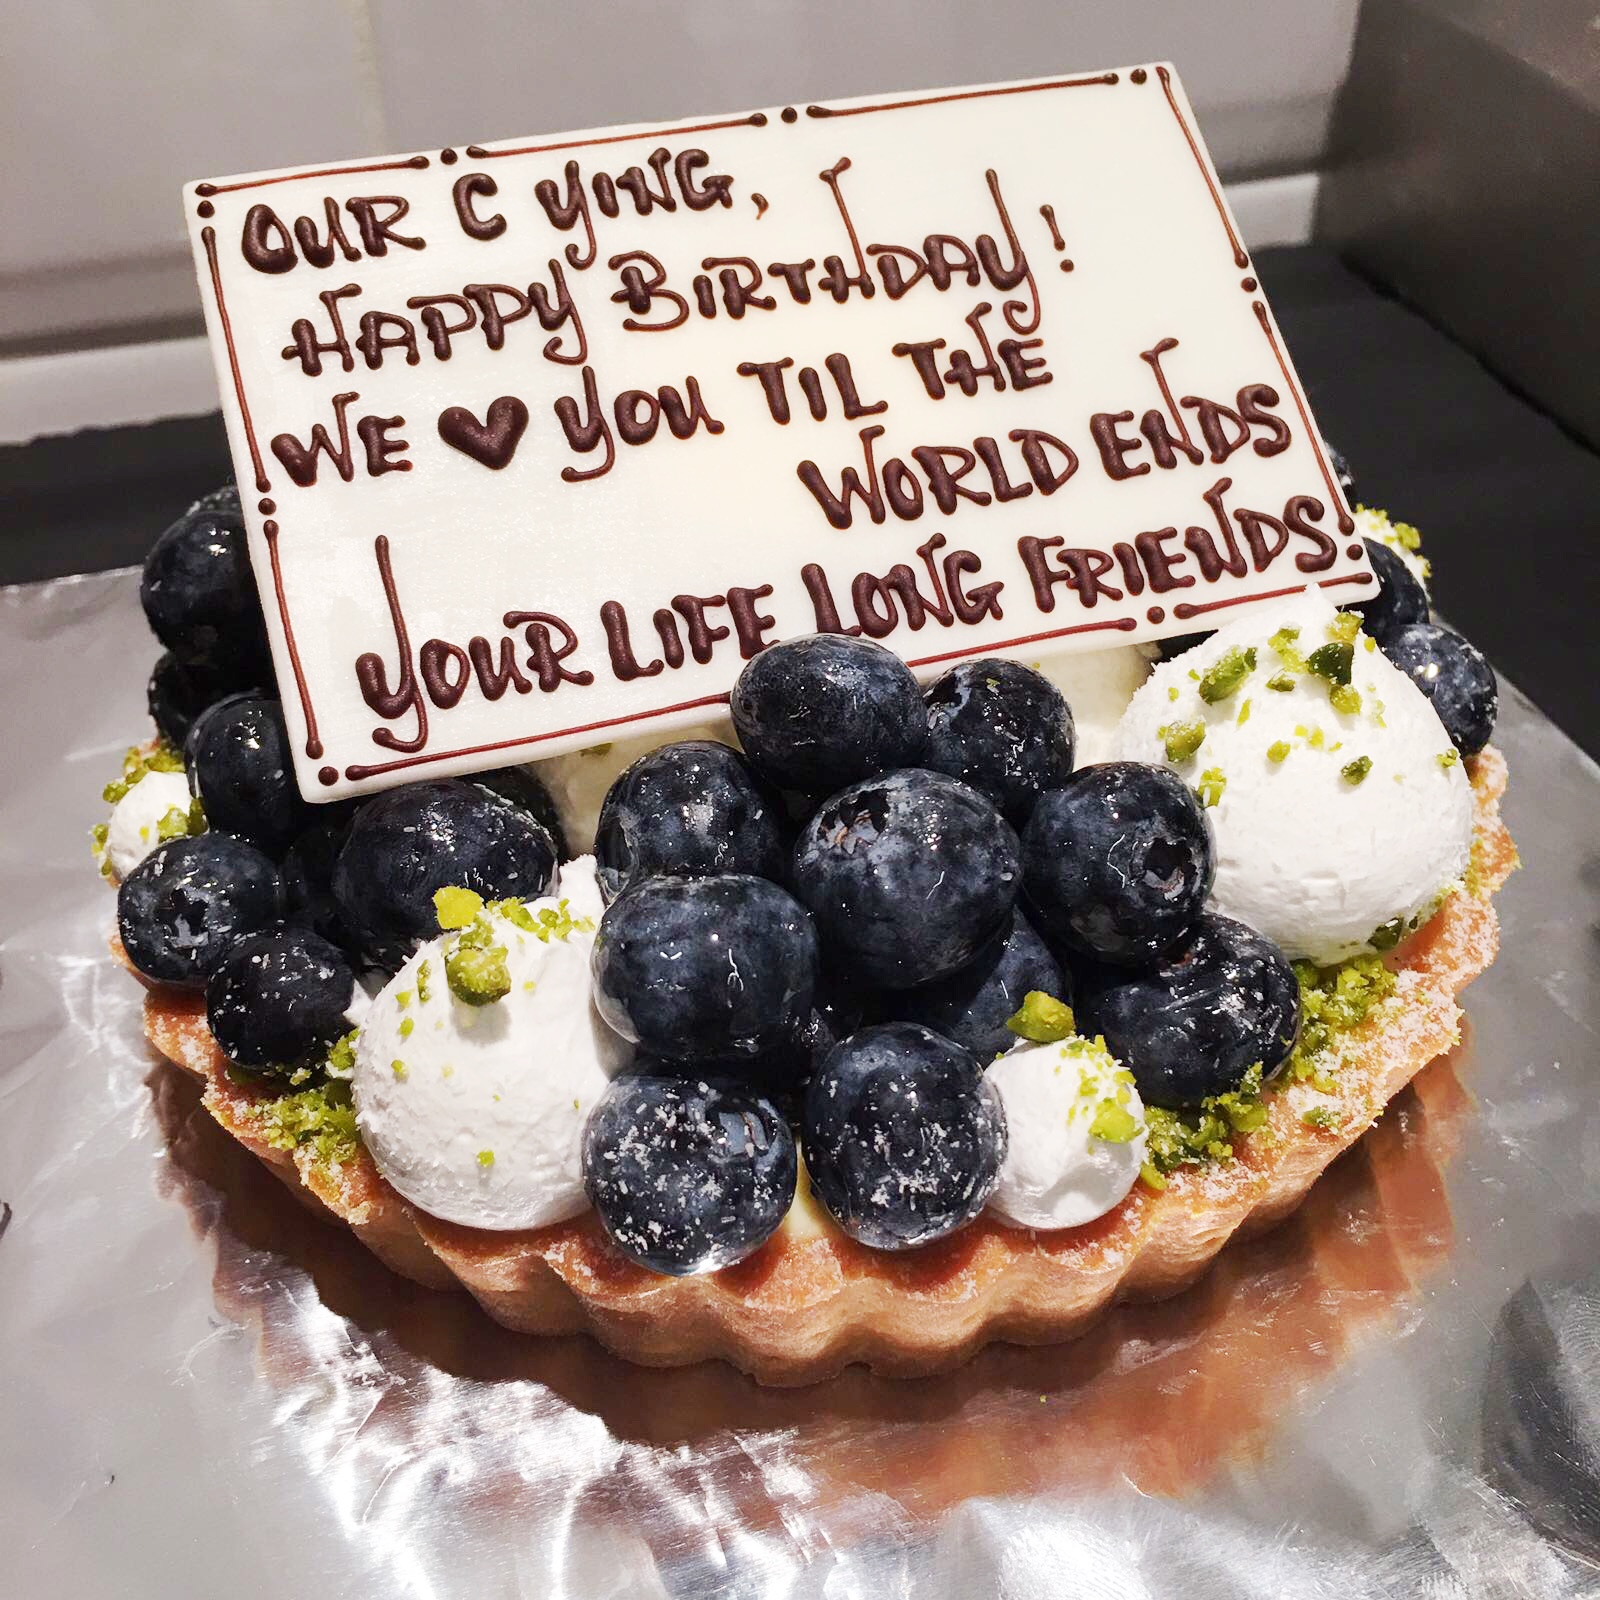 OUR C YING,
HAPPY BIRTHDAY!
WE ♥ YOU TIL THE
WORLD ENDS
YOUR LIFE LONG FRIENDS.